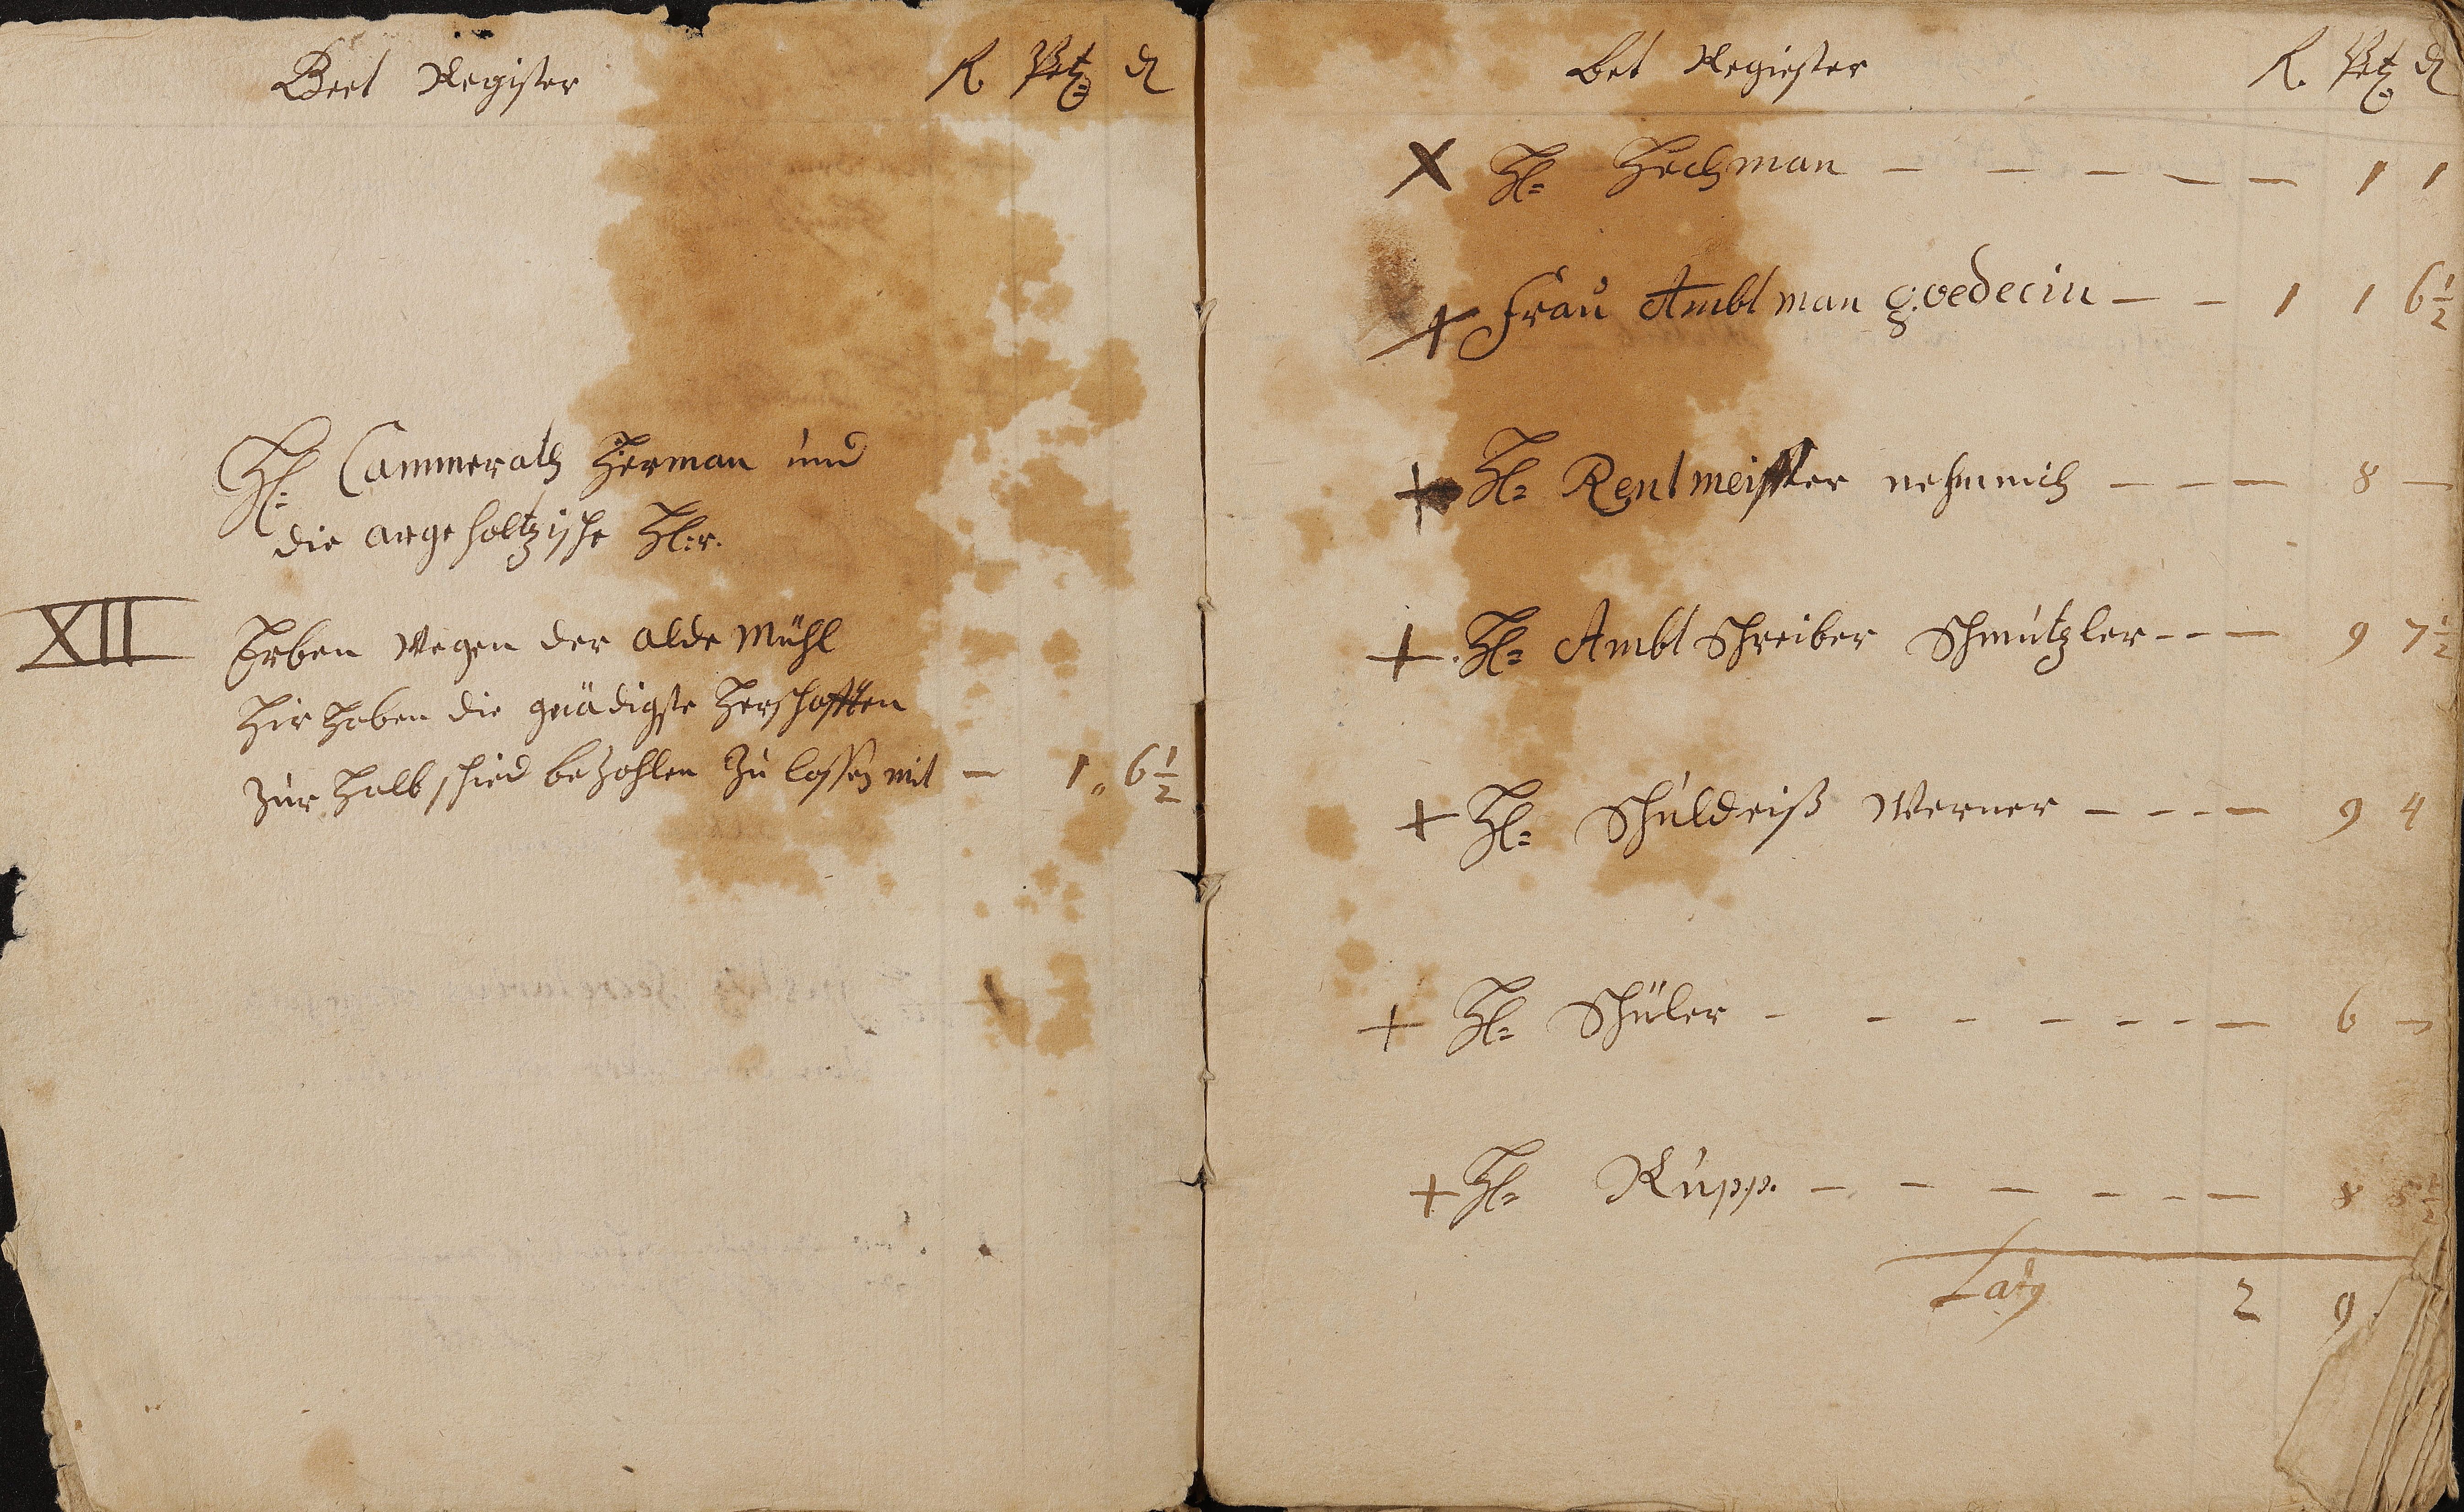 Beet Register R. Btz d
H: Cammerath Herman und
die argeholtzische H:r.
XII Erben wegen der alde Mühl
Hir haben die gnädigste Herschafften
zur Halbschied bezahlen zu lassen mit — 1 „ 6 1/2
Bet Regiester R. Btz d
X H= Hechman — — — — — 1 1
+ Frau Ambtman goedecin — — 1 1 6 1/2
+ H= Rentmeister nehmich — — — 8 —
+ H= Ambtschreiber Schmutzler - - — 9 7 1/2
+ H= Schuldeiß Werner — - - — 9 4
+ H= Schüler - - - - - - — 6 —
+ H= Rupp. — - — - - — 8 5 1/2
Latq 2 9